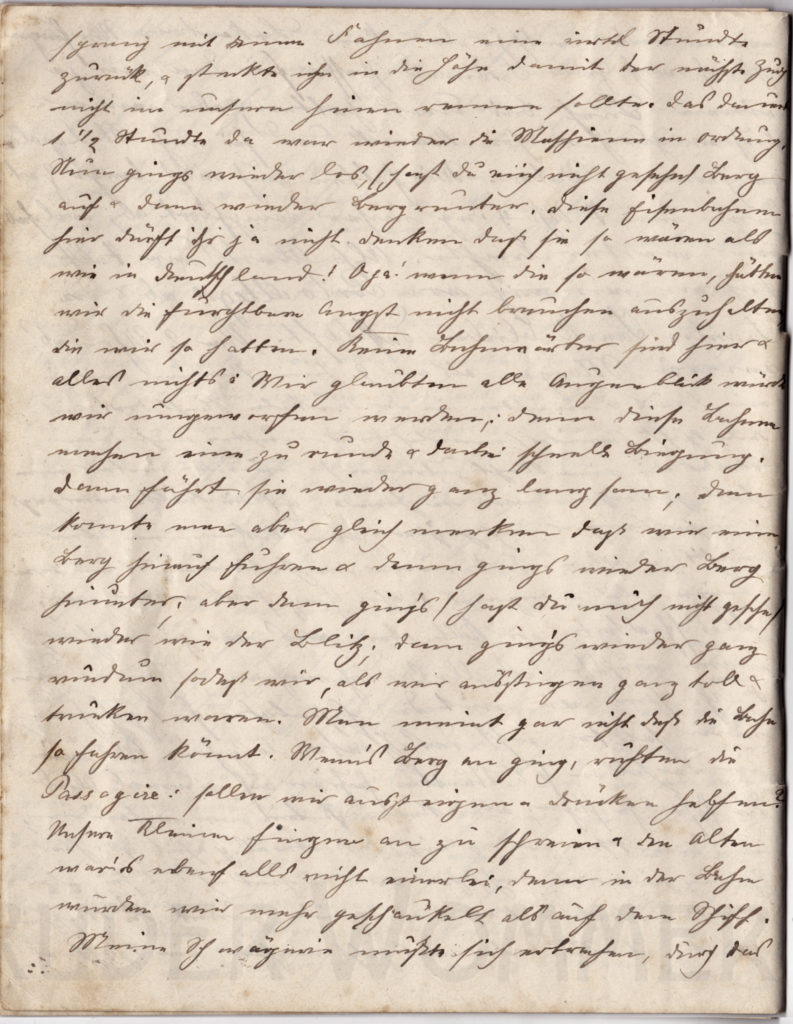 sprang mit einem Fahnen eine virtel Stundte
zurück, & steckte ihn in die Höhe damit der nächste Zug
nicht in unsern hinen rennen sollte. das dauerte
1 1/2 Stundte da war wieder die Maschiene in ordnug.
Nun gings wieder los, (hast du mich nicht gesehn) Berg
auf & dann wieder Bergrunter. diese Eisenbahnen
hier dürft ihr ja nicht denken daß sie so wären als
wie in deutschland! O ja! wenn die so wären, hätten
wir die furchtbare Angst nicht brauchen auszuhalten
die wir so hatten. Keine Bahnwärter sind hier &
alles nichts: Wir glaubten alle Augenblick würde
wir umgeworfen werden; denn diese Bahnen
machen eine zu runde & dabei schnelle Biegung.
dann fährt sie wieder ganz langsam; dann
konnte man aber gleich merken daß wir einen
Berg hinauf fuhren & dann gings wieder Berg
hinunter; aber dann ging's (hast du mich nicht gesehn)
wieder wie der Blitz; dann ging's wieder ganz
rundum sodaß wir, als wir ausstiegen ganz toll &
trunken waren. Man meint gar nicht daß die Bahn
so fahren könnt. Wenn's Berg an ging, rufften die
Passagire: sollen wir aussteigen & drücken helfen?
Unsere Kleinen fingen an zu schreien & den Alten
war's ebenfalls nicht einerlei, denn in der Bahn
wurden wir mehr geschaukelt als auf dem Schiff.
Meine Schwägerin mußte sich erbrechen, durch das